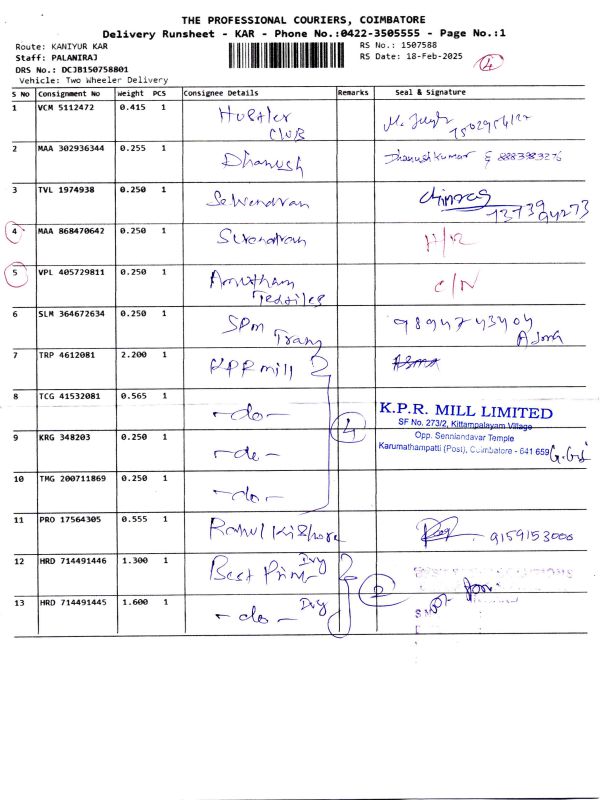 THE PROFESSIONAL COURIERS, COIMBATORE
Delivery Runsheet - KAR - Phone No.:0422-3505555 - Page No.:1
Route: KANIYUR KAR
RS No.: 1507588
Staff: PALANIRAJ
RS Date: 18-Feb-2025
4
DRS No.: DCJB150758801
Vehicle: Two Wheeler Delivery
S No Consignment No Weight PCS Consignee Details Remarks Seal & Signature
1 VCM 5112472 0.415 1 Hustler
CLUB
2 MAA 302936344 0.255 1 Dhanush Dhanushkumar 8883983276
3 TVL 1974938 0.250 1
4 MAA 868470642 0.250 1 Surendran
5 VPL 405729811 0.250 1 Amutham C/N
Textiles
6 SLM 364672634 0.250 1 SPM 9894743404
Trans
7 TRP 4612081 2.200 1 KPR mill
8 TCG 41532081 0.565 1 - do -
4
K.P.R. MILL LIMITED
SF No. 273/2, Kittampalayam Village
Opp. Senniandavar Temple
Karumathampatti (Post), Coimbatore - 641 659
9 KRG 348203 0.250 1 - do -
10 TMG 200711869 0.250 1 - do -
11 PRO 17564305 0.555 1 Rahul Kishore 9159153000
12 HRD 714491446 1.300 1 Best Print
2
13 HRD 714491445 1.600 1 - do -